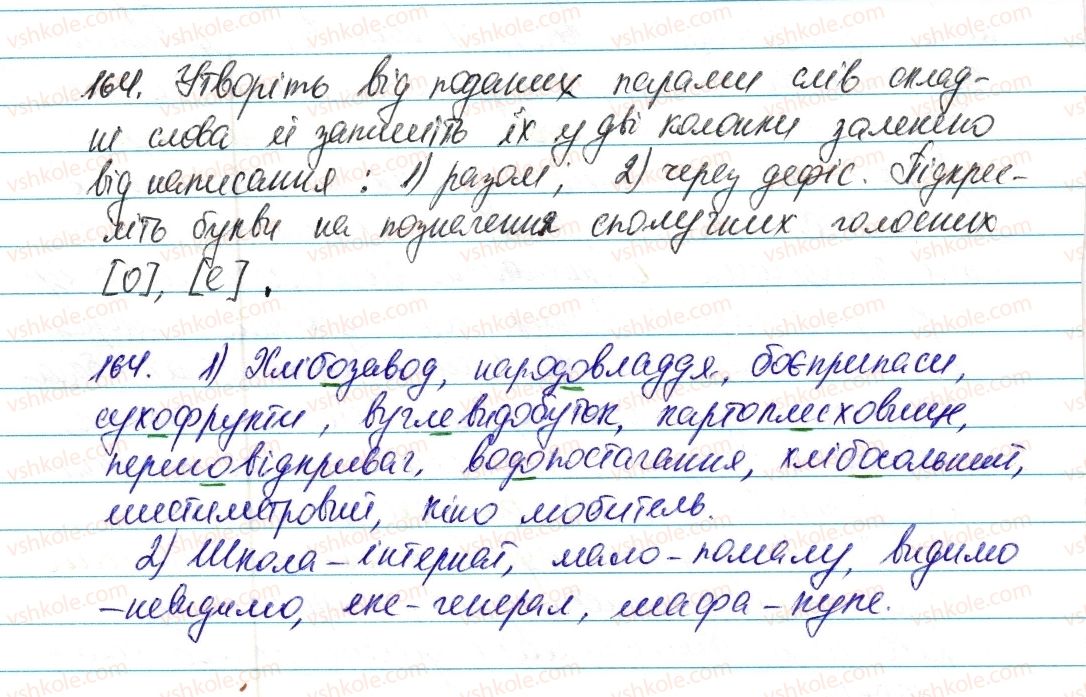 164. Утворіть від поданих парами слів склад-
ні слова й запишіть їх у дві колонки залежно
від написання: 1) разом; 2) через дефіс. Підкрес-
літь букви на позначення сполучних голосних
[о], [е].
164. 1) Хлібозавод, народовладдя, боєприпаси,
сухофрукти, вуглевидобуток, картоплесховище,
першовідкривач, водопостачання, хлібосольний,
шестиметровий, кіно любитель.
2) Школа-інтернат, мало-помалу, видимо
-невидимо, екс-генерал, шафа-купе.